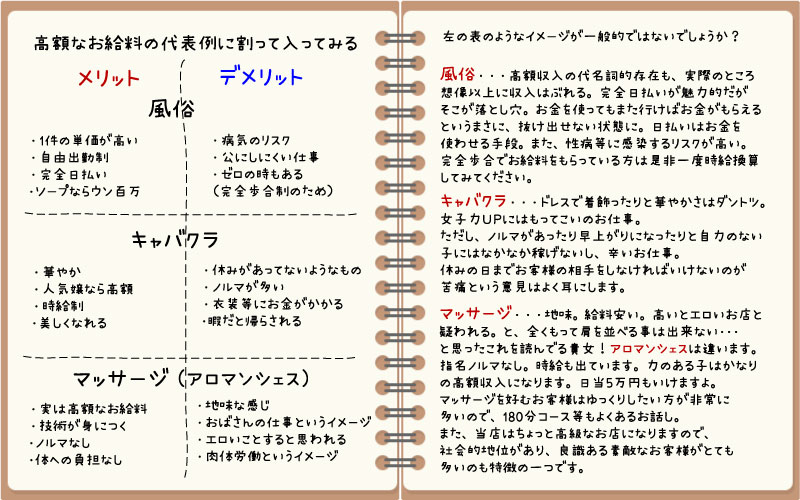 高額なお給料の代表例に割って入ってみる
メリット
デメリット
風俗
・1件の単価が高い
・自由出勤制
・完全日払い
・ソープならウン百万
・病気のリスク
・公にしにくい仕事
・ゼロの時もある
（完全歩合制のため）
キャバクラ
・華やか
・人気嬢なら高額
・時給制
・美しくなれる
・休みがあってないようなもの
・ノルマが多い
・衣装等にお金がかかる
・暇だと帰らされる
マッサージ（アロマンシェス）
・実は高額なお給料
・技術が身につく
・ノルマなし
・体への負担なし
・地味な感じ
・おばさんの仕事というイメージ
・エロいことすると思われる
・肉体労働というイメージ
左の表のようなイメージが一般的ではないでしょうか？
風俗・・・高額収入の代名詞的存在も、実際のところ
想像以上に収入はぶれる。完全日払いが魅力的だが
そこが落とし穴。お金を使ってもまた行けばお金がもらえる
というまさに、抜け出せない状態に。日払いはお金を
使わせる手段。また、性病等に感染するリスクが高い。
完全歩合でお給料をもらっている方は是非一度時給換算
してみてください。
キャバクラ・・・ドレスで着飾ったりと華やかさはダントツ。
女子力UPにはもってこいのお仕事。
ただし、ノルマがあったり早上がりになったりと自力のない
子にはなかなか稼げないし、辛いお仕事。
休みの日までお客様の相手をしなければいけないのが
苦痛という意見はよく耳にします。
マッサージ・・・地味。給料安い。高いとエロいお店と
疑われる。と、全くもって肩を並べる事は出来ない・・・
と思ったこれを読んでる貴女！アロマンシェスは違います。
指名ノルマなし。時給も出ています。力のある子はかなり
の高額収入になります。日当5万円もいけますよ。
マッサージを好むお客様はゆっくりしたい方が非常に
多いので、180分コース等もよくあるお話し。
また、当店はちょっと高級なお店になりますので、
社会的地位があり、良識ある素敵なお客様がとても
多いのも特徴の一つです。